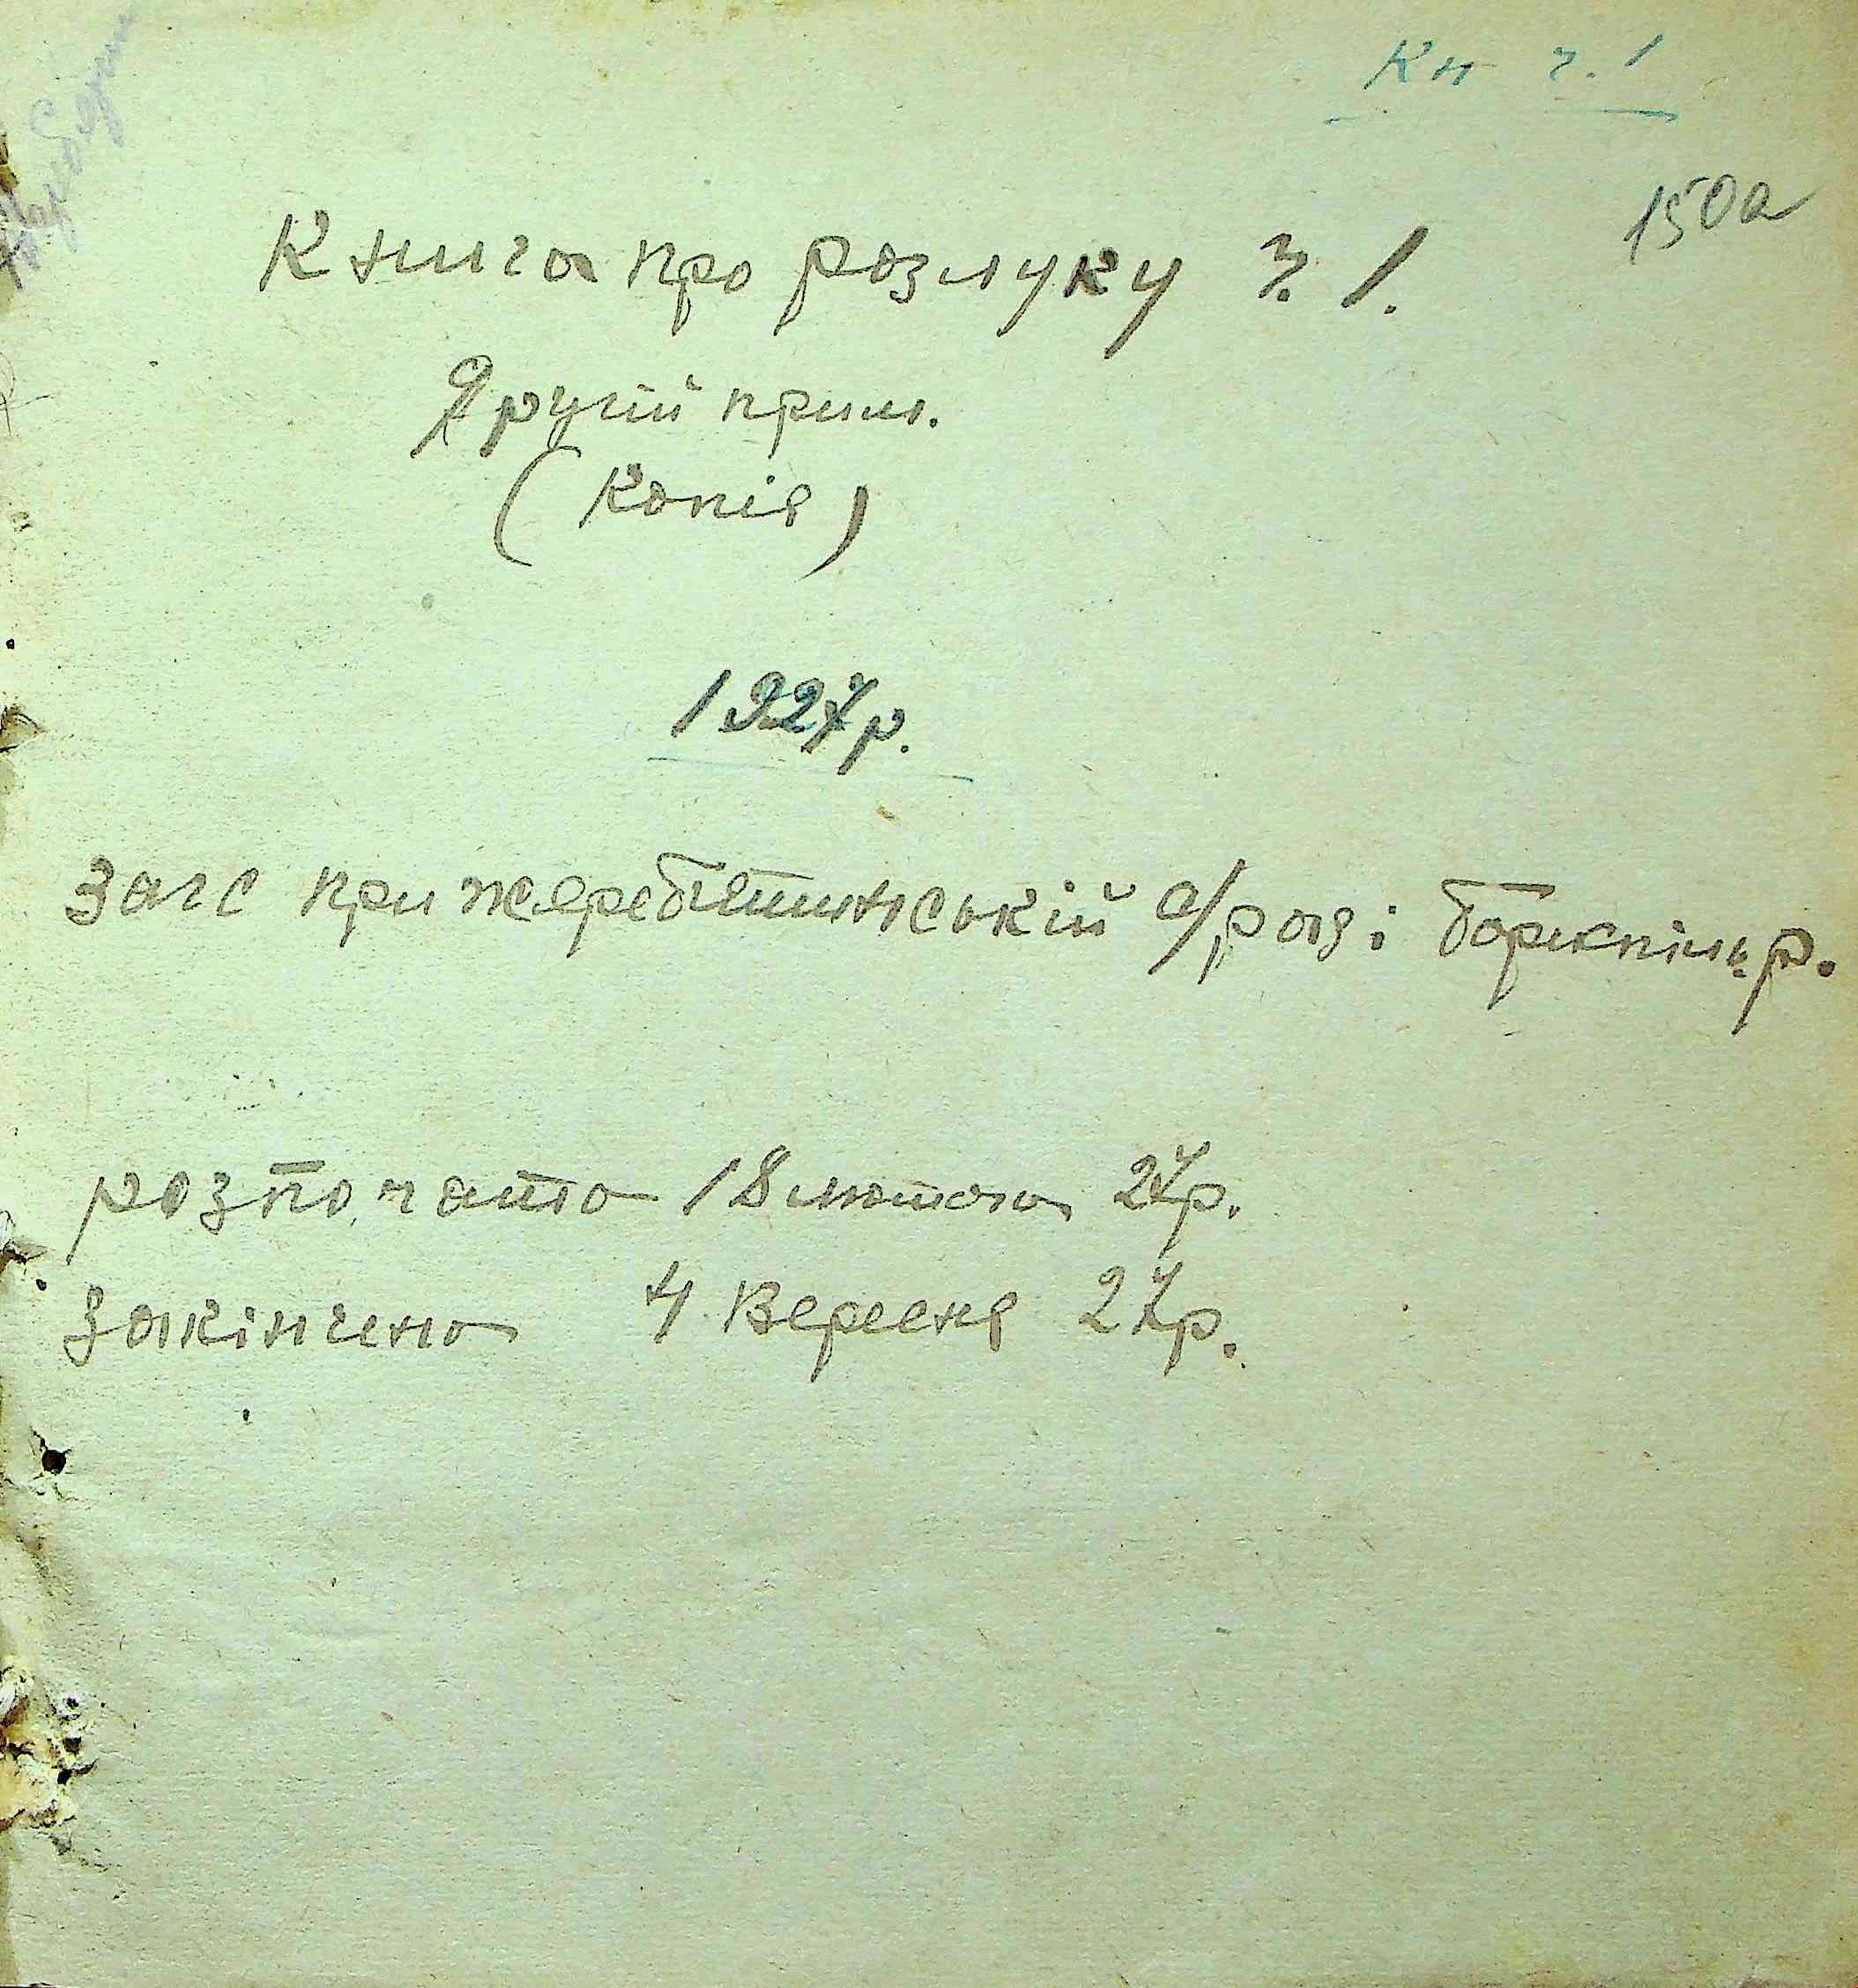 Кн ч. 1
150а
Книга про розлуку ч. 1.
Другий прим.
(Копія)
1927р.
Загс при жеребятинській с/раді борискпільр.
розпочато 18 лютого 27р.
Закінчено 4 Вересня 27р.